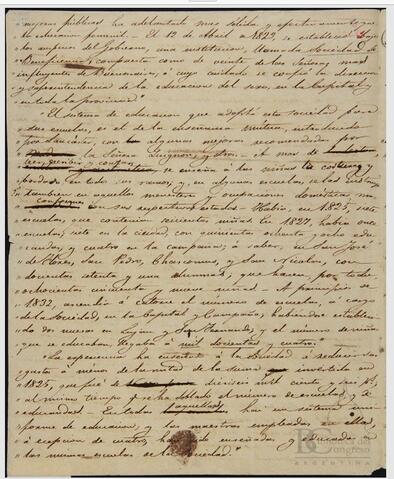 mejoras públicas ha adelantado mas sólida y efectivamente que
la educacion femenil. — El 12 de Abril de 1823, se estableció bajo
los auspicios del Gobierno, una institucion, llamada Sociedad de
Beneficencia, compuesta como de veinte de las Señoras mas
influyentes de Buenos Aires, á cuyo cuidado se confió la direccion
y superintendencia de la educacion del sexo, en la Capital y
en toda la provincia.
El sistema de educacion que adoptó esta sociedad para
sus escuelas, es el de la enseñanza mútua, introducido
por Lancaster, con algunas mejoras recomendadas por
la Señora Quignon, y otros. — A mas de
leer, escribir y contar,
se enseña á las niñas la costura y
bordado en todos sus ramos, y, en algunas escuelas, se las instruye
tambien en aquellos menteres y ocupaciones domésticas
conformes á su respectivo estado. Habia, en 1825, siete
escuelas, que contenian seiscientas niñas. En 1827, habia once
escuelas, siete en la ciudad, con quinientas ochenta y ocho edu-
candas, y cuatro en la campaña; á saber, en San José
de Flores, San Pedro, Chascomus, y San Nicolas, con
doscientas setenta y una alumnas; que hacen, por todo
ochocientas cincuenta y nueve niñas. — A principios de
1832, ascendia á catorce el número de escuelas, á cargo
de la Sociedad, en la Capital y Campaña, habiéndose estable-
cido dos nuevas en Lujan y San Fernando, y el número de niñas
que se educaban, llegaba á mil doscientas y cuatro.
La esperiencia ha enseñado á la Sociedad á reducir sus
gastos á menos de la mitad de la suma invertida en
1825, que fué de diez y seis mil ciento, y seis ps.
al mismo tiempo que se ha doblado el número de escuelas y de
educandas. En todas aquellas hay un sistema uni-
forme de educacion, y las maestras empleadas en ellas,
á excepcion de cuatro, han sido enseñadas y educadas en
las mismas escuelas de la Sociedad."
BC
Biblioteca del
Congreso
ARGENTINA